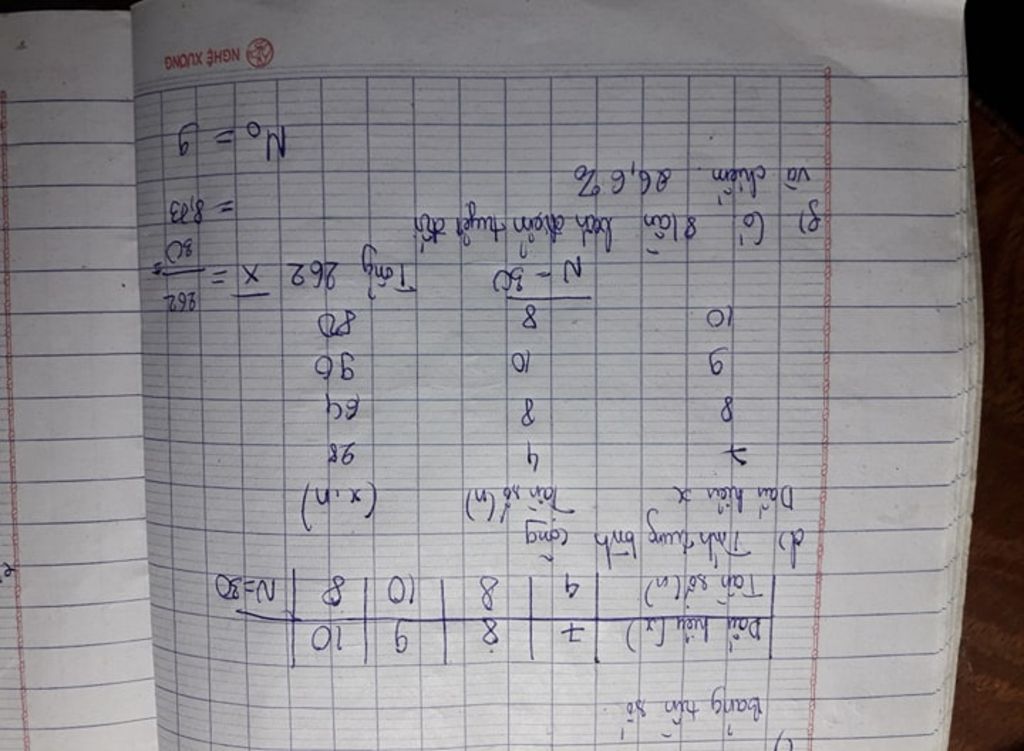 c)
Bảng tần số
Dấu hiệu (x) 7 8 9 10
Tần số (n) 4 8 10 8 N=30
d) Tính trung bình cộng
Dấu hiệu x Tần số (n) (x.n)
7 4 28
8 8 64
9 10 90
10 8 80
N = 30 Tổng 262 X = 262/30 = 8,73
e) Có 8 lần điểm tuyệt đối
và chiếm 26,6%
M₀ = 9
NGHỆ XUONG